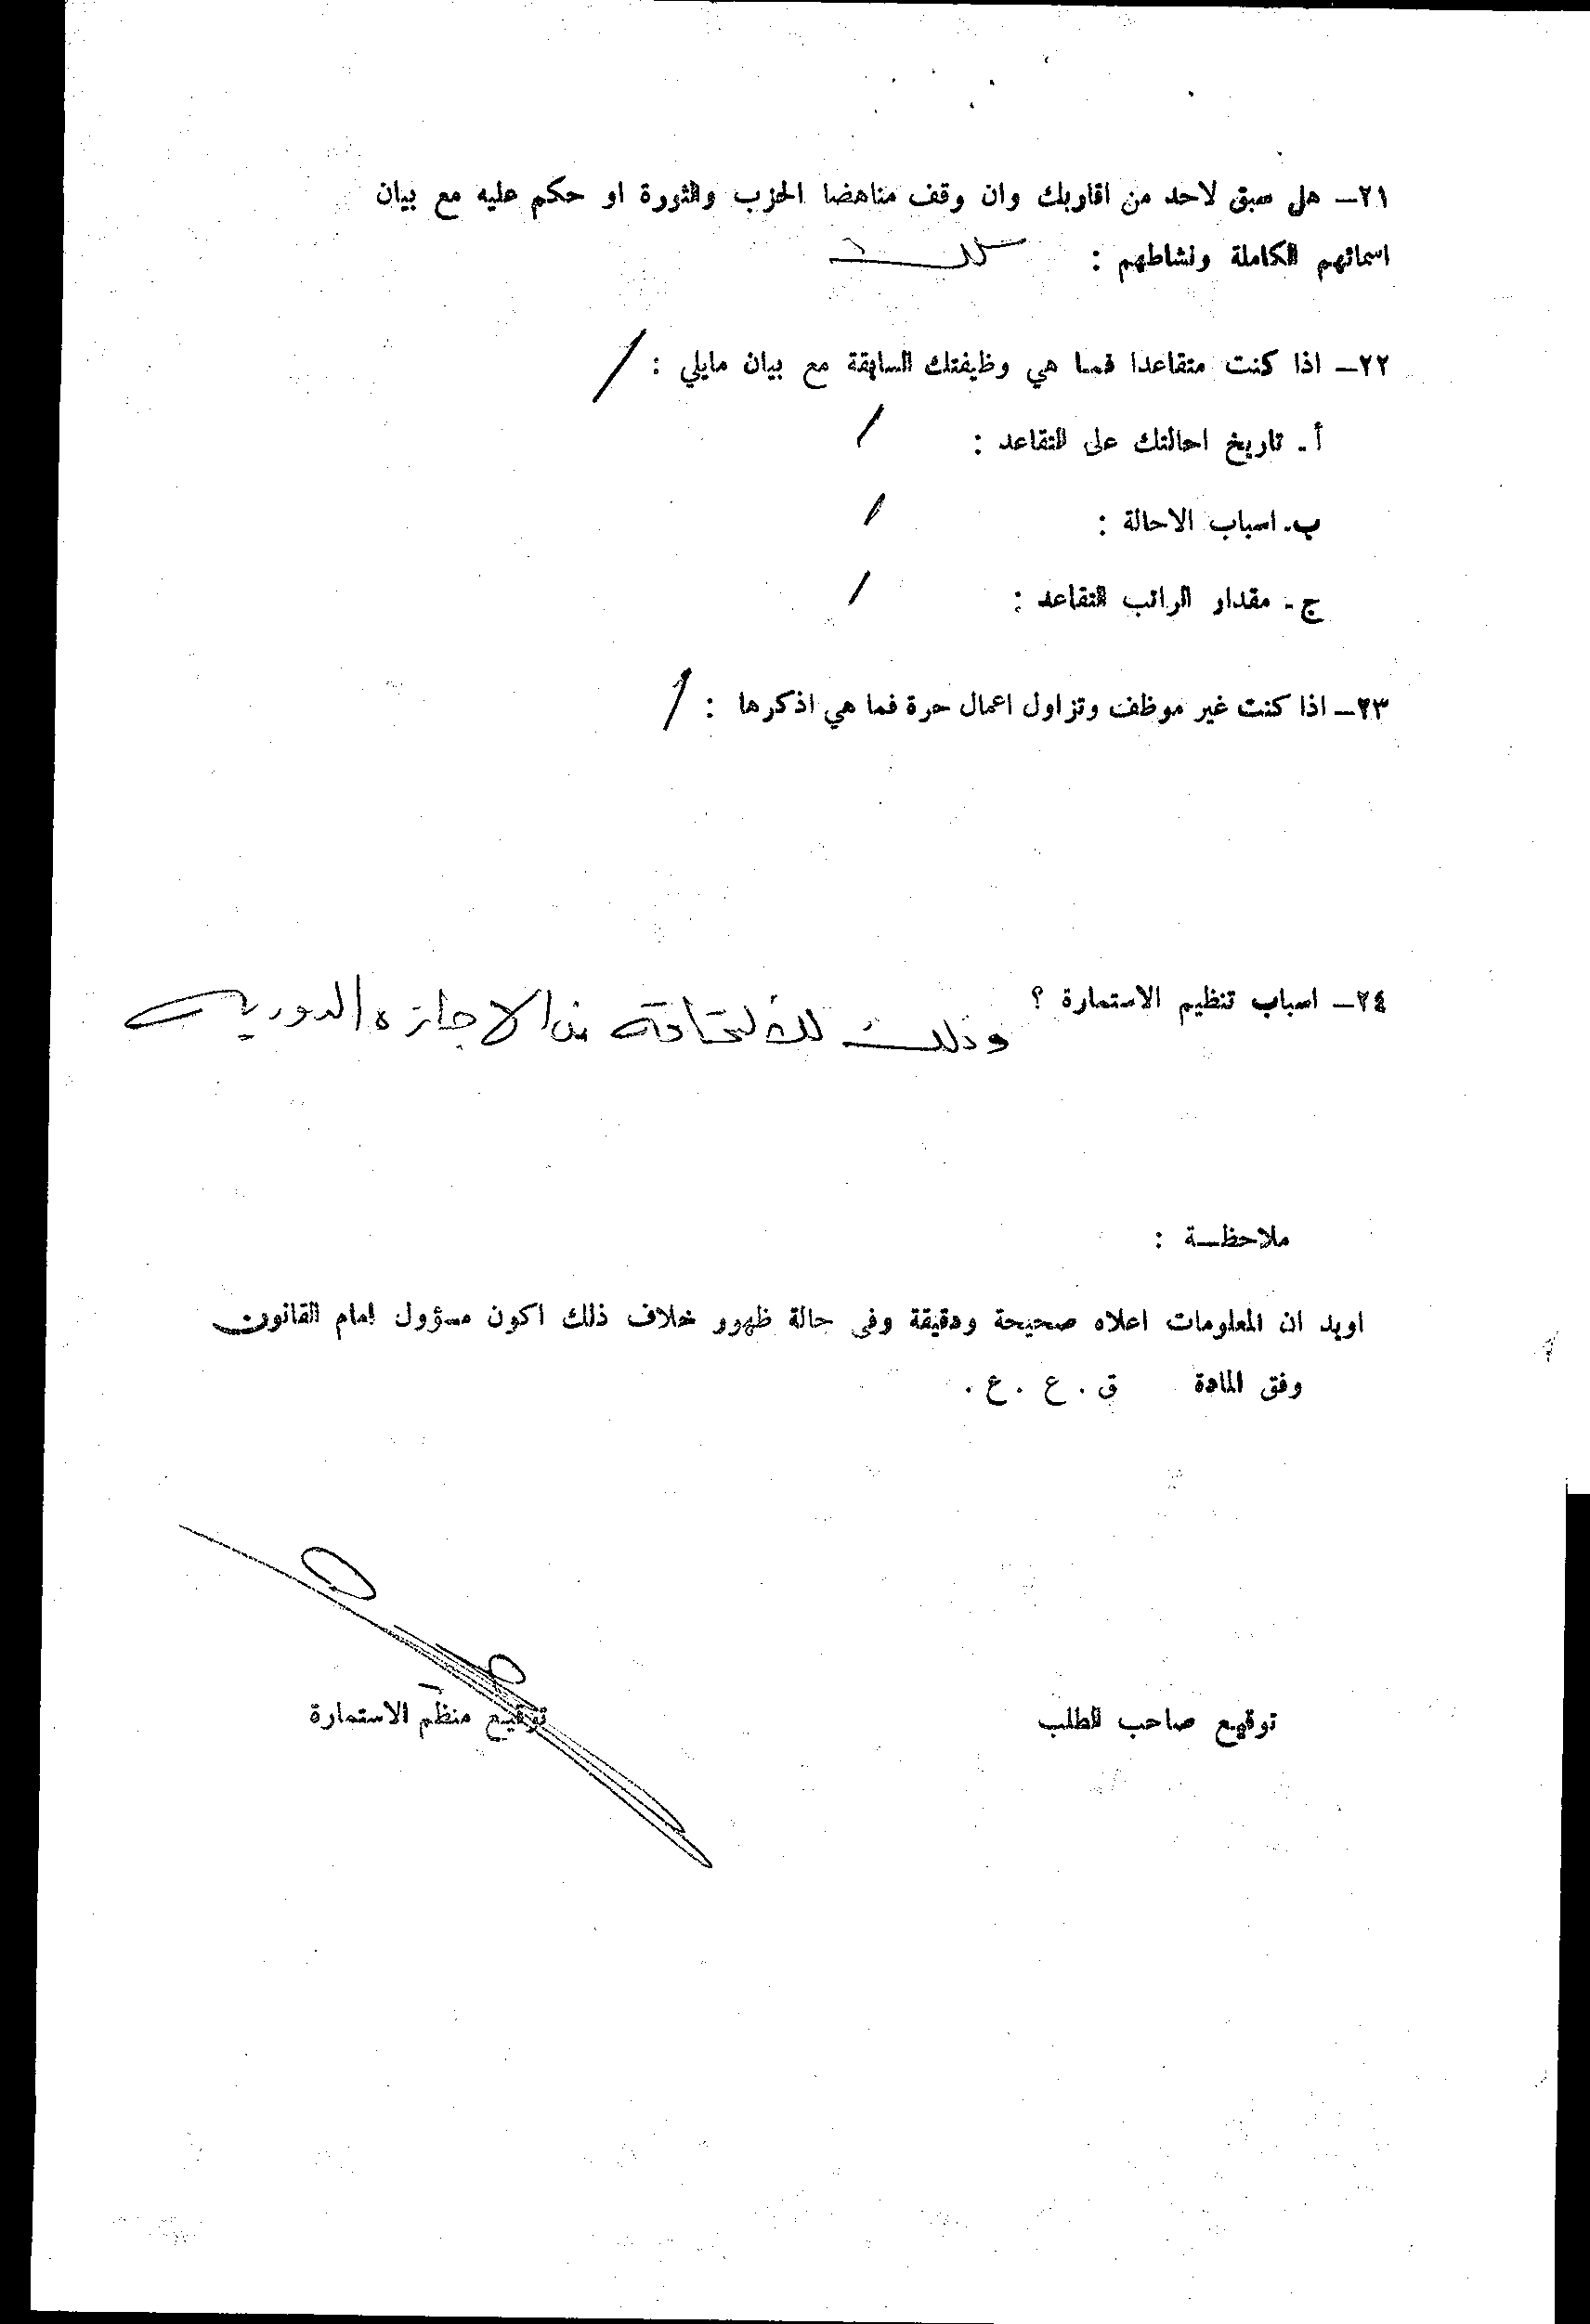 ٢١ـ هل سبق لاحد من اقاربك وان وقف مناهضا الحزب والثورة او حكم عليه مع بيان
اسمائهم الكاملة ونشاطهم : كلا
٢٢ـ اذا كنت متقاعدا فما هي وظيفتك السابقة مع بيان مايلي : /
أ ـ تاريخ احالتك على التقاعد : /
ب ـ اسباب الاحالة : /
ج ـ مقدار الراتب التقاعد : /
٢٣ـ اذا كنت غير موظف وتزاول اعمال حرة فما هي اذكرها : /
٢٤ـ اسباب تنظيم الاستمارة ؟
وذلك من الاجازه الدورية
ملاحظـــة :
اويد ان المعلومات اعلاه صحيحة ودقيقة وفي حالة ظهور خلاف ذلك اكون مسؤول امام القانون
وفق المادة ق . ع . ع .
توقيع صاحب الطلب توقيع منظم الاستمارة